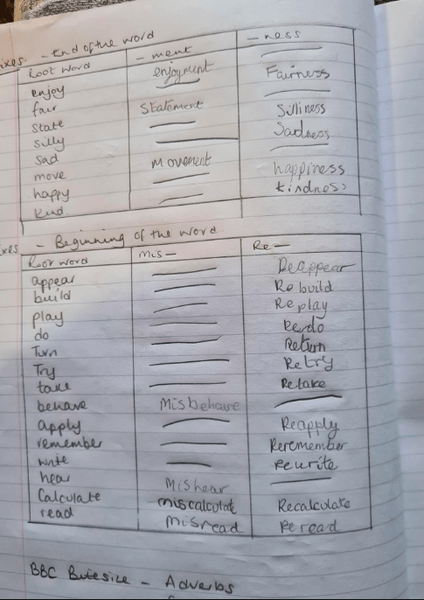 xes - End of the word
Root word - ment - ness
enjoy enjoyment
fair Fairness
state Statement
silly Silliness
sad Sadness
move Movement
happy happiness
kind kindness
xes - Beginning of the word
Root word Mis - Re -
appear Reappear
build Rebuild
play Replay
do Redo
Turn Return
Try Retry
take Retake
behave Misbehave
apply Reapply
remember Reremember
write rewrite
hear Mishear
Calculate miscalculate Recalculate
read Misread Reread
BBC Bitesize - Adverbs